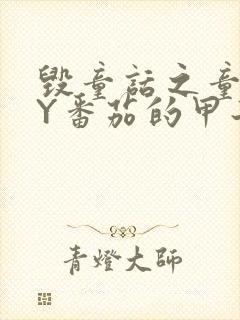 毁童话之童
Y番茄的甲
青燈大师